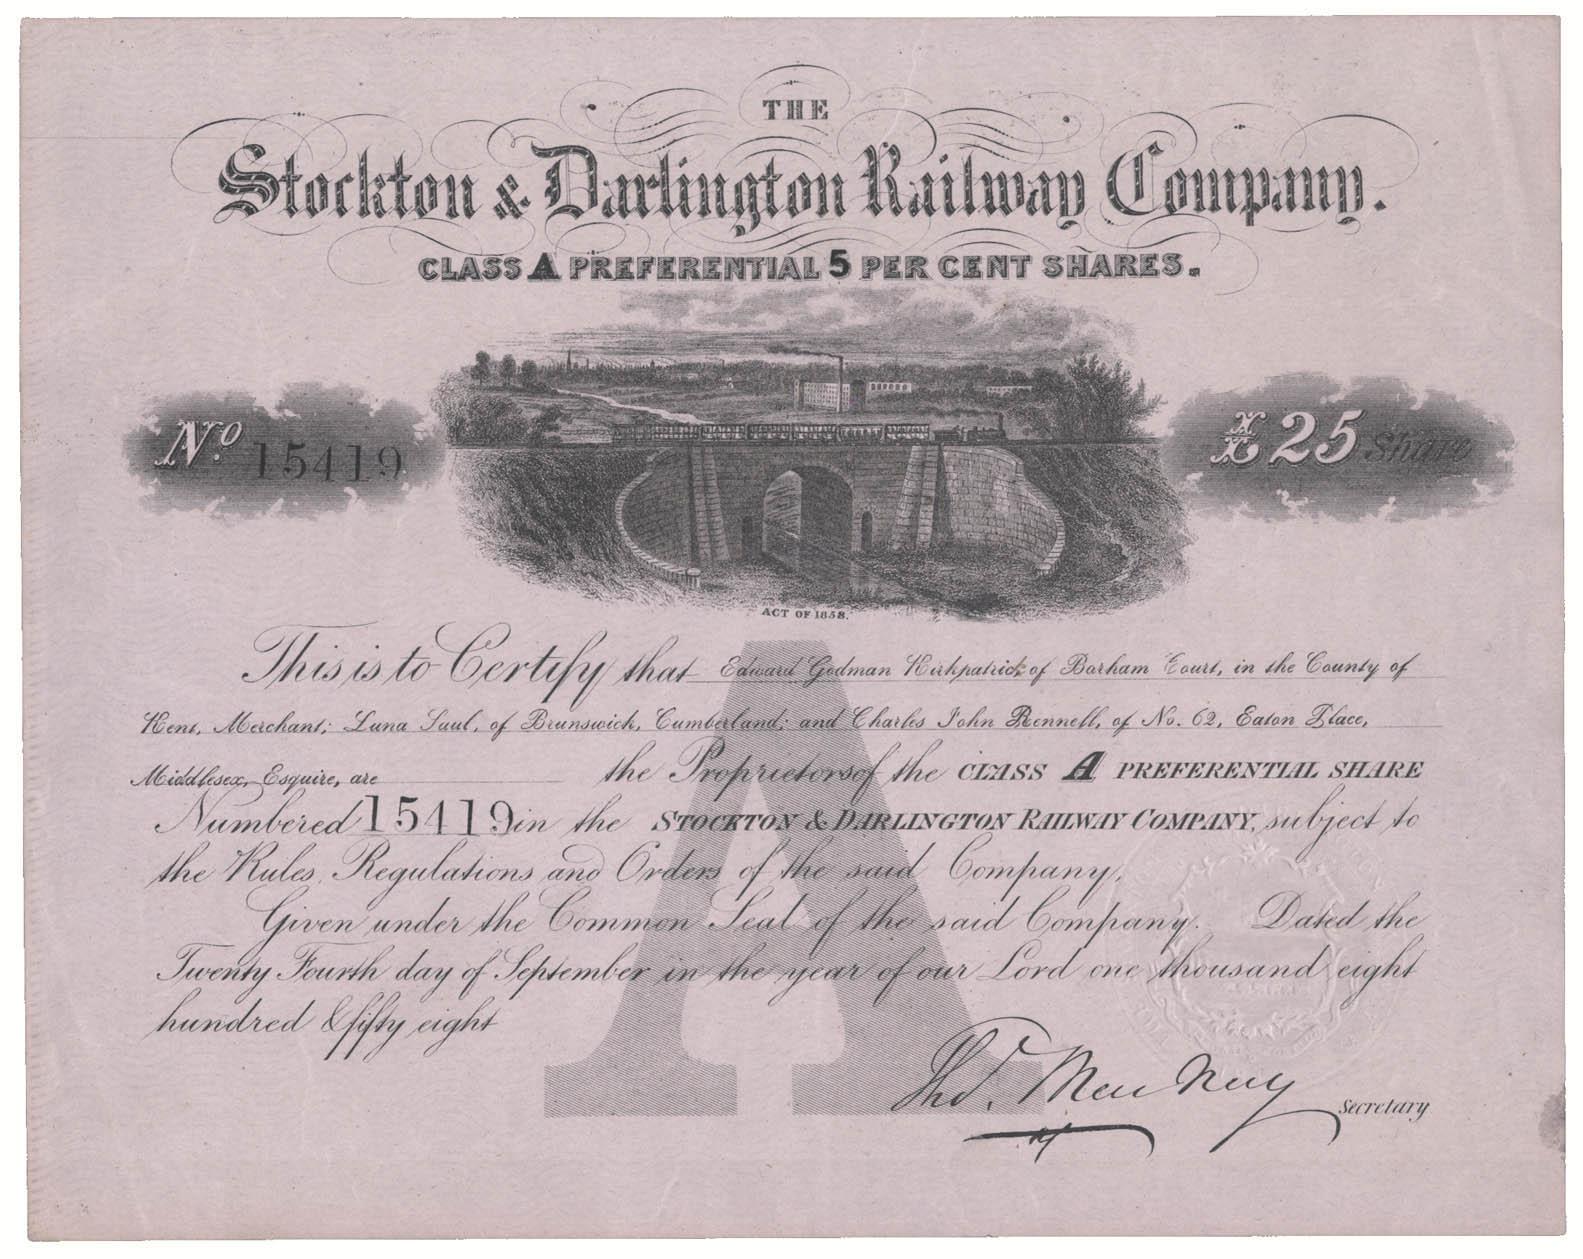 THE
Stockton & Darlington Railway Company.
CLASS A PREFERENTIAL 5 PER CENT SHARES.
No. 15419
£25 Share
ACT OF 1858.
This is to Certify that Edward Godman Kirkpatrick of Barham Court, in the County of
Kent, Merchant; Luna Suul, of Brunswick, Cumberland; and Charles John Rennell, of No. 62, Eaton Place,
Middlesex, Esquire, are the Proprietors of the CLASS A PREFERENTIAL SHARE
Numbered 15419 in the STOCKTON & DARLINGTON RAILWAY COMPANY, subject to
the Rules, Regulations and Orders of the said Company.
Given under the Common Seal of the said Company. Dated the
Twenty Fourth day of September in the year of our Lord one thousand eight
hundred & fifty eight
Thos. MacNay
Secretary
A